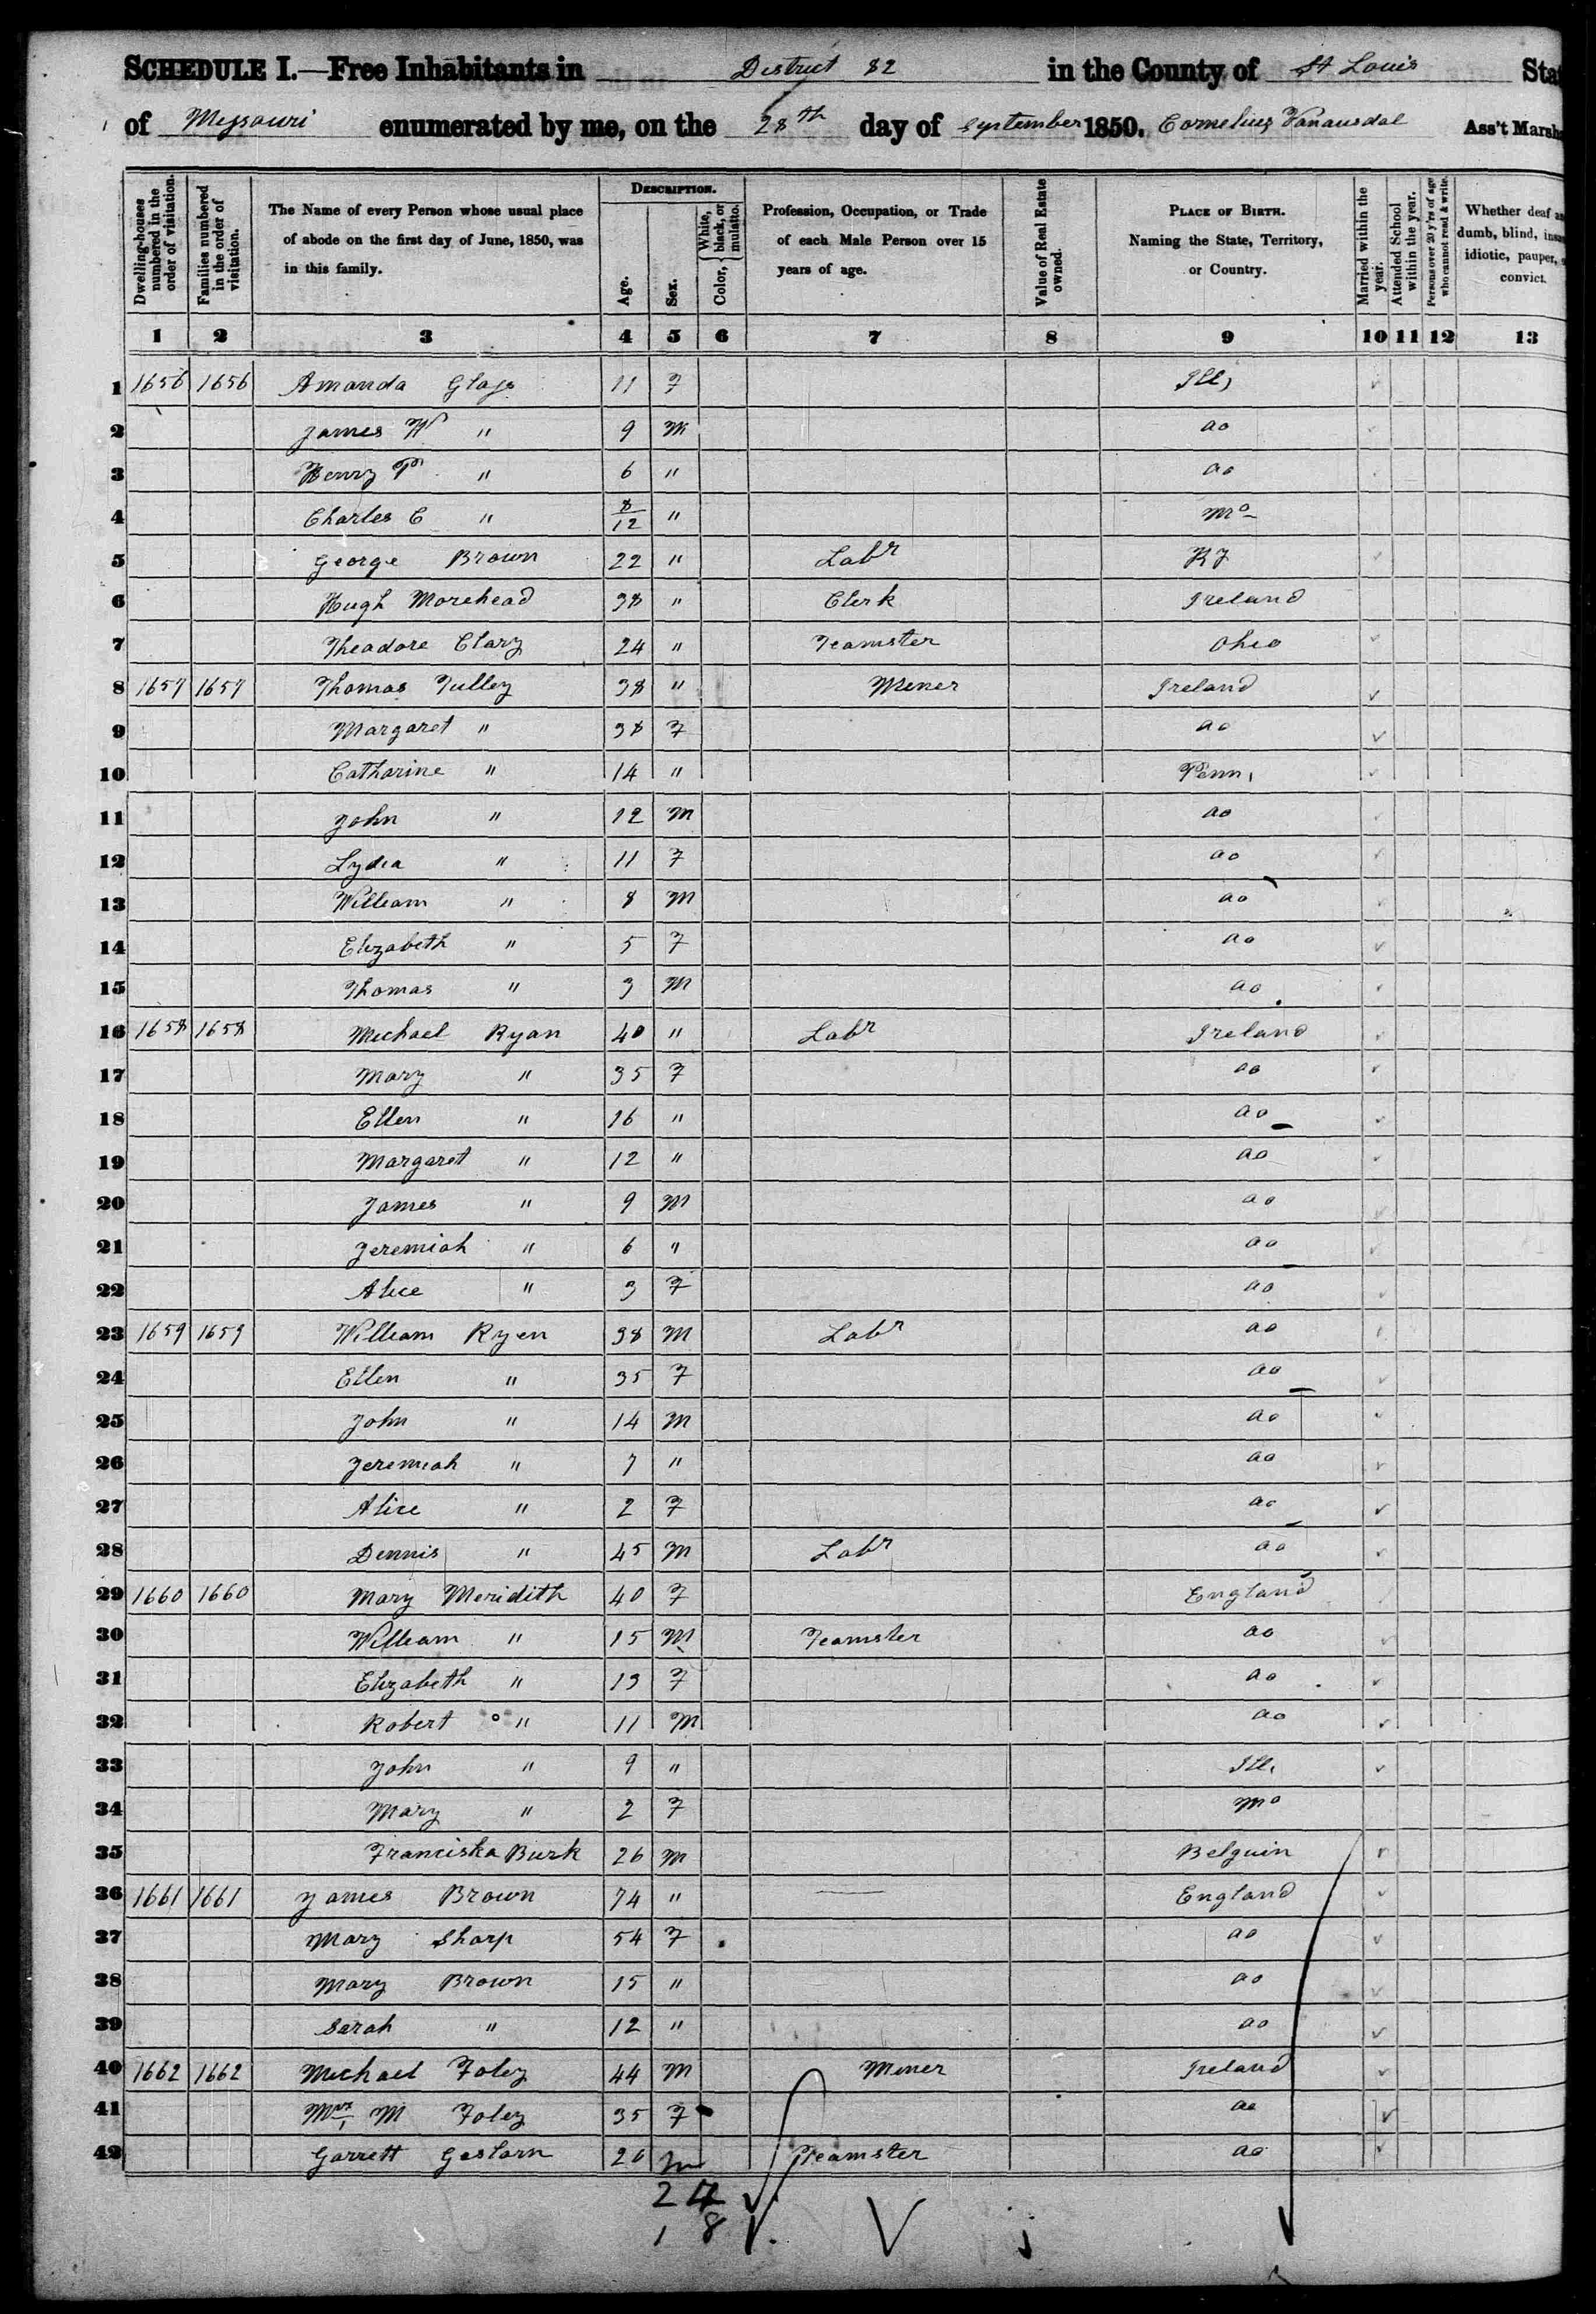 SCHEDULE I.—Free Inhabitants in District 82 in the County of St Louis Stat
of Missouri enumerated by me, on the 28th day of September 1850. Cornelius Vanausdal Ass't Marsha
Dwelling-houses numbered in the order of visitation.
Families numbered in the order of visitation.
The Name of every Person whose usual place of abode on the first day of June, 1850, was in this family.
DESCRIPTION.
Age.
Sex.
Color, { White, black, or mulatto.
Profession, Occupation, or Trade of each Male Person over 15 years of age.
Value of Real Estate owned.
PLACE OF BIRTH. Naming the State, Territory, or Country.
Married within the year.
Attended School within the year.
Persons over 20 y'rs of age who cannot read & write.
Whether deaf and dumb, blind, insane, idiotic, pauper, or convict.
1 2 3 4 5 6 7 8 9 10 11 12 13
1 1656 1656 Amanda Glass 11 F Ill,
2 James W " 9 M do
3 Henry P " 6 " do
4 Charles C " 8/12 " Mo
5 George Brown 22 " Labr Ky
6 Hugh Morehead 38 " Clerk Ireland
7 Theadore Clary 24 " Teamster Ohio
8 1657 1657 Thomas Tulley 38 " Miner Ireland
9 Margaret " 38 F do
10 Catharine " 14 " Penn,
11 John " 12 M do
12 Lydia " 11 F do
13 William " 8 M do
14 Elizabeth " 5 F do
15 Thomas " 3 M do
16 1658 1658 Michael Ryan 40 " Labr Ireland
17 Mary " 35 F do
18 Ellen " 16 " do
19 Margaret " 12 " do
20 James " 9 M do
21 Jeremiah " 6 " do
22 Alice " 3 F do
23 1659 1659 William Ryen 38 M Labr do
24 Ellen " 35 F do
25 John " 14 M do
26 Jeremiah " 7 " do
27 Alice " 2 F do
28 Dennis " 45 M Labr do
29 1660 1660 Mary Meridith 40 F England
30 William " 15 M Teamster do
31 Elizabeth " 13 F do
32 Robert " 11 M do
33 John " 9 " Ill,
34 Mary " 2 F Mo
35 Franciska Burk 26 M Belguin
36 1661 1661 James Brown 74 " — England
37 Mary Sharp 54 F do
38 Mary Brown 15 " do
39 Sarah " 12 " do
40 1662 1662 Michael Foley 44 M Miner Ireland
41 Mrs M Foley 35 F do
42 Garrett Geslorn 26 M Teamster do
24
18